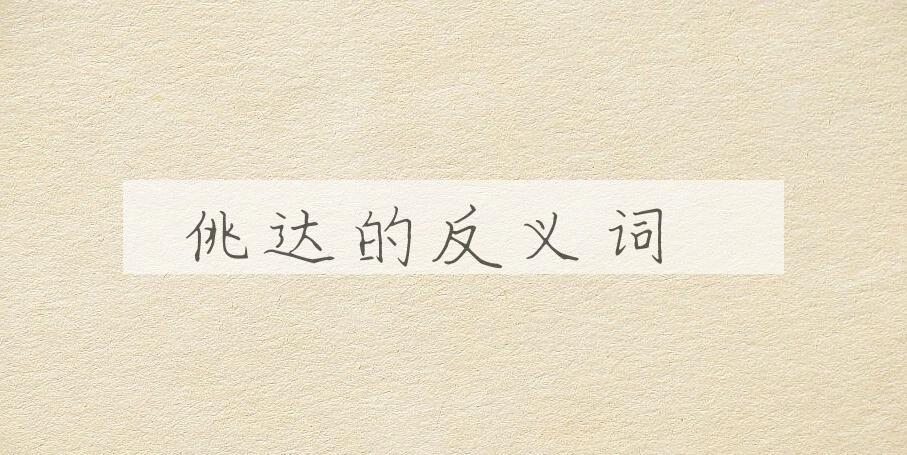 佻达的反义词